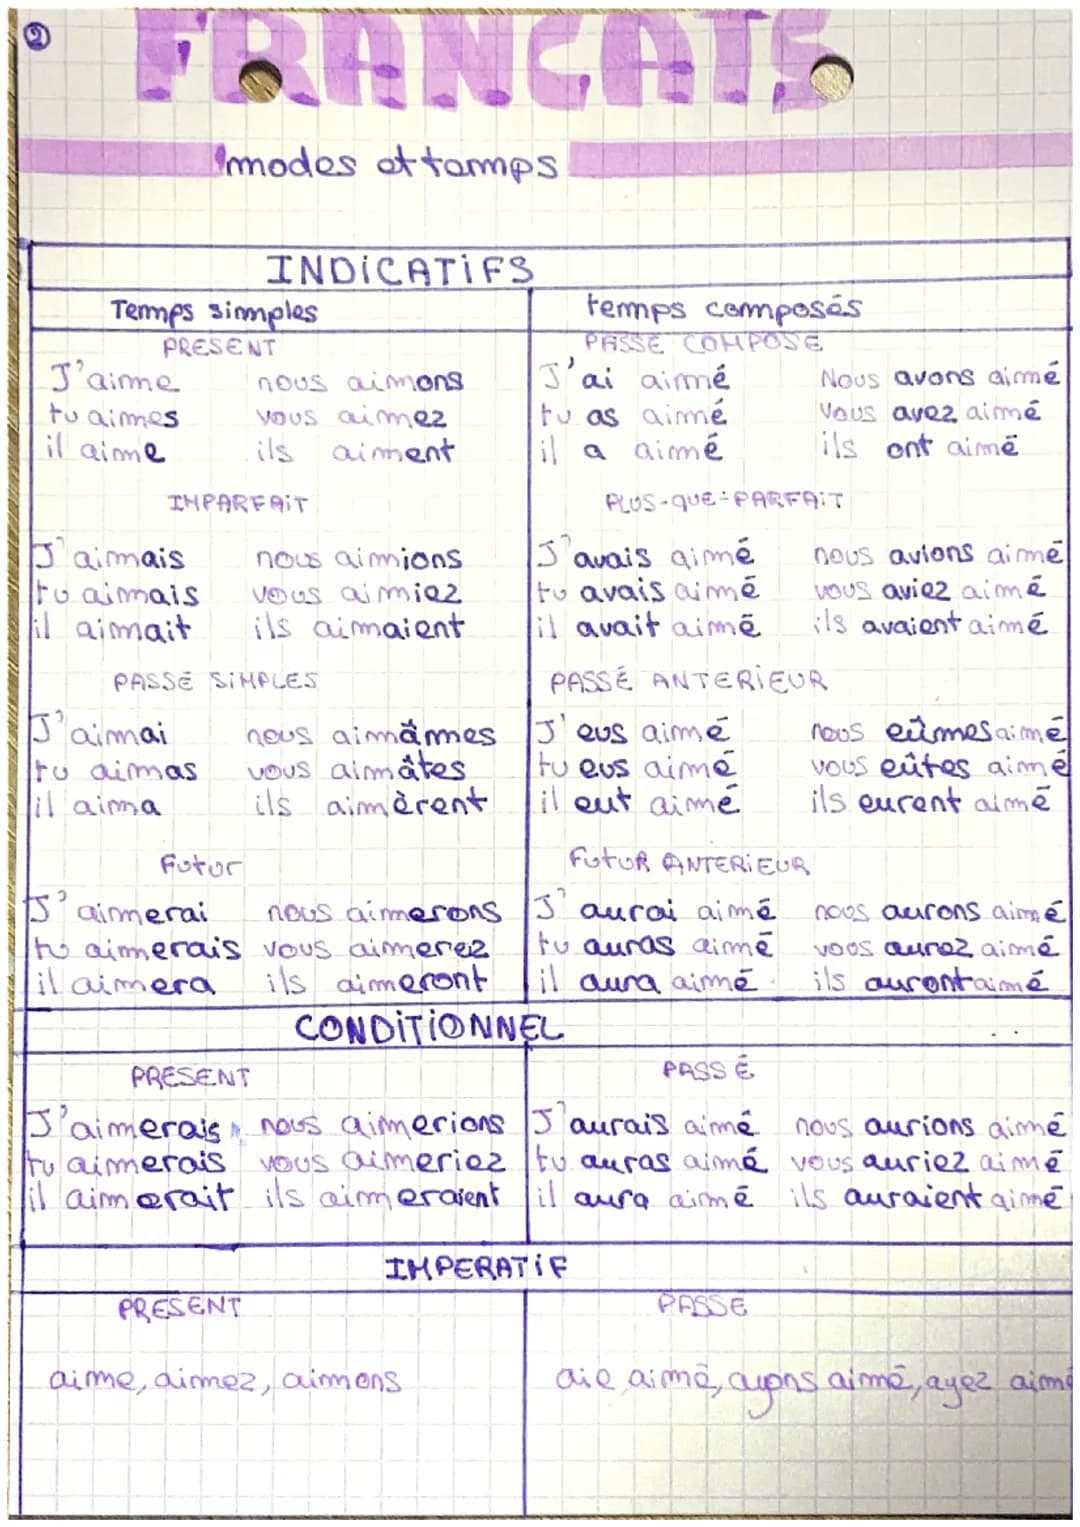 2
FRANCAIS
modes et temps
INDICATIFS
Temps simples temps composés
PRESENT PASSE COMPOSE
J'aime nous aimons J'ai aimé Nous avons aimé
tu aimes vous aimez tu as aimé Vous avez aimé
il aime ils aiment il a aimé ils ont aimé
IMPARFAIT PLUS-QUE-PARFAIT
J'aimais nous aimions J'avais aimé nous avions aimé
tu aimais vous aimiez tu avais aimé vous aviez aimé
il aimait ils aimaient il avait aimé ils avaient aimé
PASSÉ SIMPLES PASSÉ ANTERIEUR
J'aimai nous aimâmes J'eus aimé nous eûmes aimé
tu aimas vous aimâtes tu eus aimé vous eûtes aimé
il aima ils aimèrent il eut aimé ils eurent aimé
Futur FUTUR ANTERIEUR
J'aimerai nous aimerons J'aurai aimé nous aurons aimé
tu aimerais vous aimerez tu auras aimé vous aurez aimé
il aimera ils aimeront il aura aimé ils auront aimé
CONDITIONNEL
PRESENT PASSÉ
J'aimerais nous aimerions J'aurais aimé nous aurions aimé
tu aimerais vous aimeriez tu auras aimé vous auriez aimé
il aimerait ils aimeraient il aura aimé ils auraient aimé
IMPERATIF
PRESENT PASSE
aime, aimez, aimons aie aimé, ayons aimé, ayez aimé